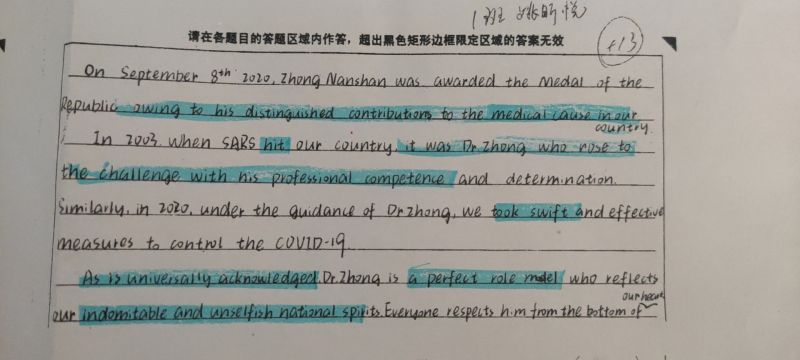 1班 姚昕悦
请在各题目的答题区域内作答，超出黑色矩形边框限定区域的答案无效
+13
On September 8th 2020, Zhong Nanshan was awarded the Medal of the
Republic owing to his distinguished contributions to the medical cause in our
country.
In 2003, when SARS hit our country, it was Dr Zhong who rose to
the challenge with his professional competence and determination.
Similarly, in 2020, under the guidance of Dr Zhong, we took swift and effective
measures to control the COVID-19.
As is universally acknowledged, Dr Zhong is a perfect role model who reflects
our indomitable and unselfish national spirits. Everyone respects him from the bottom of
our heart